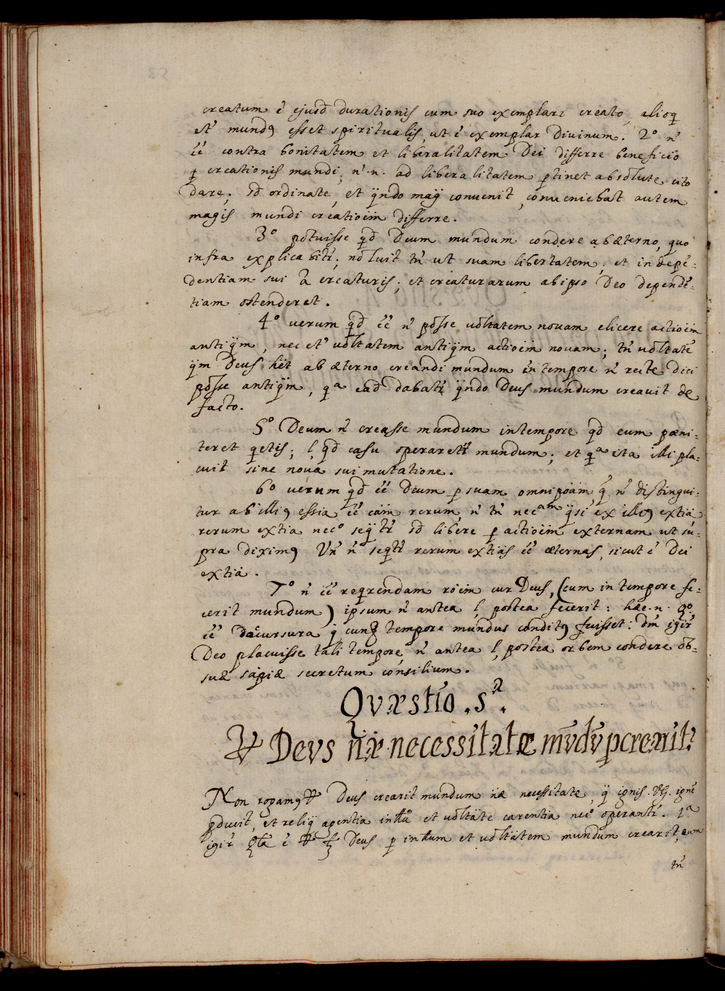 creatum ē ejusd durationis cum suo exemplari creato, alioq
etᵃ mundꝯ esset spiritualis ut ē exemplar Divinum. 2º ñ
ēē contra bonitatem et liberalitatem Dei differre beneficiū
creationis mundi, n̄.n. ad liberalitatem ꝑtinet absolute cito
dare, sd ordinate, et qn̄do magꝭ convenit, conveniebat autem
magis mundi creatioēm differre.
3º potuisse qd Deum mundum condere ab æterno, quo
infra explicabitr̄; noluit tn̄ ut suam libertatem, et indepē-
dentiam sui ā creaturis; et creaturarum ab ipso Deo dependē-
tiam ostenderet.
4º verum qd ēē ñ posse volūtatem novam elicere actioēm
antiqm̄, nec etᵃ volūtatem antiqm̄ actioēm novam; tn̄ volūtatē
qm̄ Deus hēt ab æterno creandi mundum in tempore ñ recte dici
posse antiqm̄, qᵃ eād dabatr̄ qn̄do Deus mundum creavit de
facto.
5º Deum ñ creasse mundum in tempore qd eum pæni-
teret qetis; l, qd casu operaretr̄ mundum; et qᵃ ita illi pla-
cuit sine nova sui mutatione.
6º verum qd ēē Deum ꝑ suam omnipoām q̄ ñ distingui-
tur ab illiꝯ essīa ēē cām rerum ñ tn̄ necᵃᵐ qsi ex illiꝯ extīa
rerum extīa necº seqtr̄ sd libere ꝑ actioēm externam ut su-
pra diximꝯ Un̄ ñ seqtr̄ rerum extīas ēē æternas, sicut ē Dei
extīa.
7º ñ ēē reqrendam roēm cur Deus, (cum in tempore fe-
cerit mundum) ipsum ñ antea l, postea fecerit: hæc.n. qº
ēē recursura q̄cunq tempore mundus conditꝯ fuisset: Dm̄ igir̄
Deo placuisse tali tempore ñ antea l, postea orbem condere ob
suæ sapīæ secretum consilium.
Qvæstio .5ᵃ.
Vr̄ Devs næ necessitate mv̄dv̄ ꝑcrearit?
Non rogamꝯ Vr̄ Deus crearit mundum næ necessitate, q̄ ignis .v.g. ignē
ꝓducit, et reliqꝯ agentia intu et volūtate carentia necº operantr̄. 1ᵃ
igir̄ qᵗᵃ ē Vr̄ Deus ꝑ intum et volūtatem mundum crearit, cum
tn̄